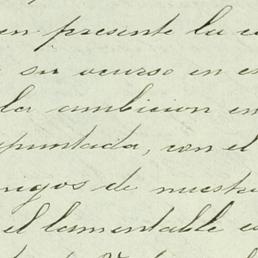 en presente la c
su ocurso en e
la ambicion en
puntada, con el
migos de nuestr
el lamentable e